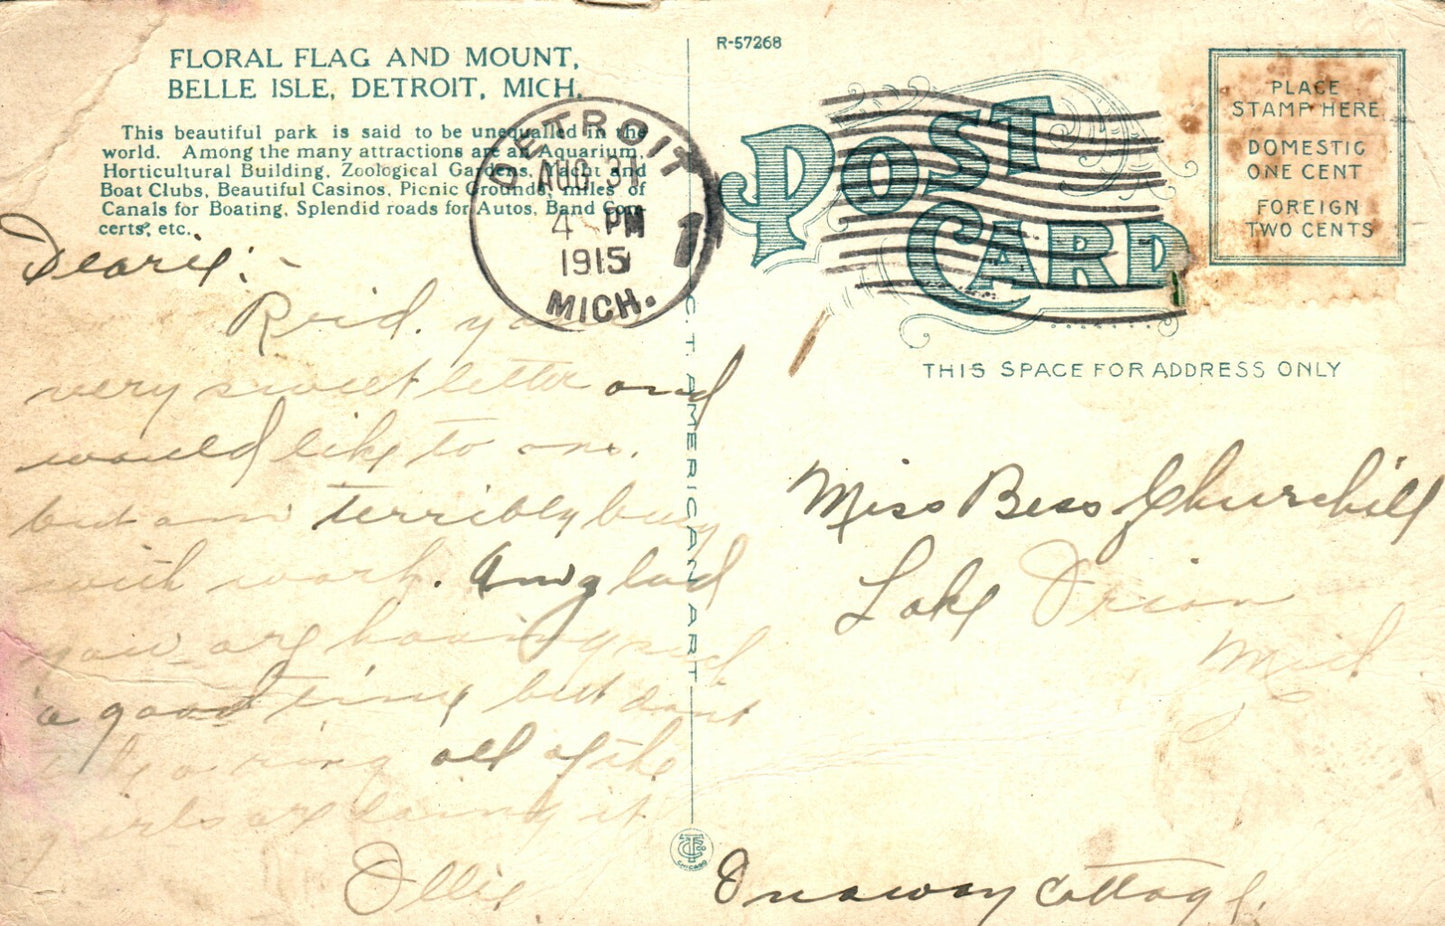 FLORAL FLAG AND MOUNT,
BELLE ISLE, DETROIT, MICH.
This beautiful park is said to be unequalled in the
world. Among the many attractions are an Aquarium,
Horticultural Building, Zoological Gardens, Yacht and
Boat Clubs, Beautiful Casinos, Picnic Grounds, miles of
Canals for Boating, Splendid roads for Autos, Band Con-
certs, etc.
DETROIT
AUG 31
4 PM
1915
MICH.
1
Dearie:-
Recid. your
very sweet letter and
would like to ans.
but am terribly busy
with work. Am glad
you are having such
a good time but don't
take a ring all of the
girls are doing it.
Ollie
C. T. AMERICAN ART
R-57268
POST
CARD
PLACE
STAMP HERE
DOMESTIC
ONE CENT
FOREIGN
TWO CENTS
THIS SPACE FOR ADDRESS ONLY
Miss Bess Churchill
Lake Orion
Mich
Onaway Cottage.
CHICAGO